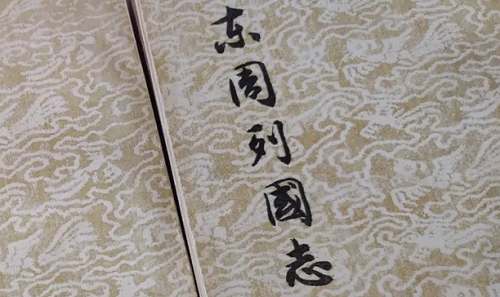 东周列國志